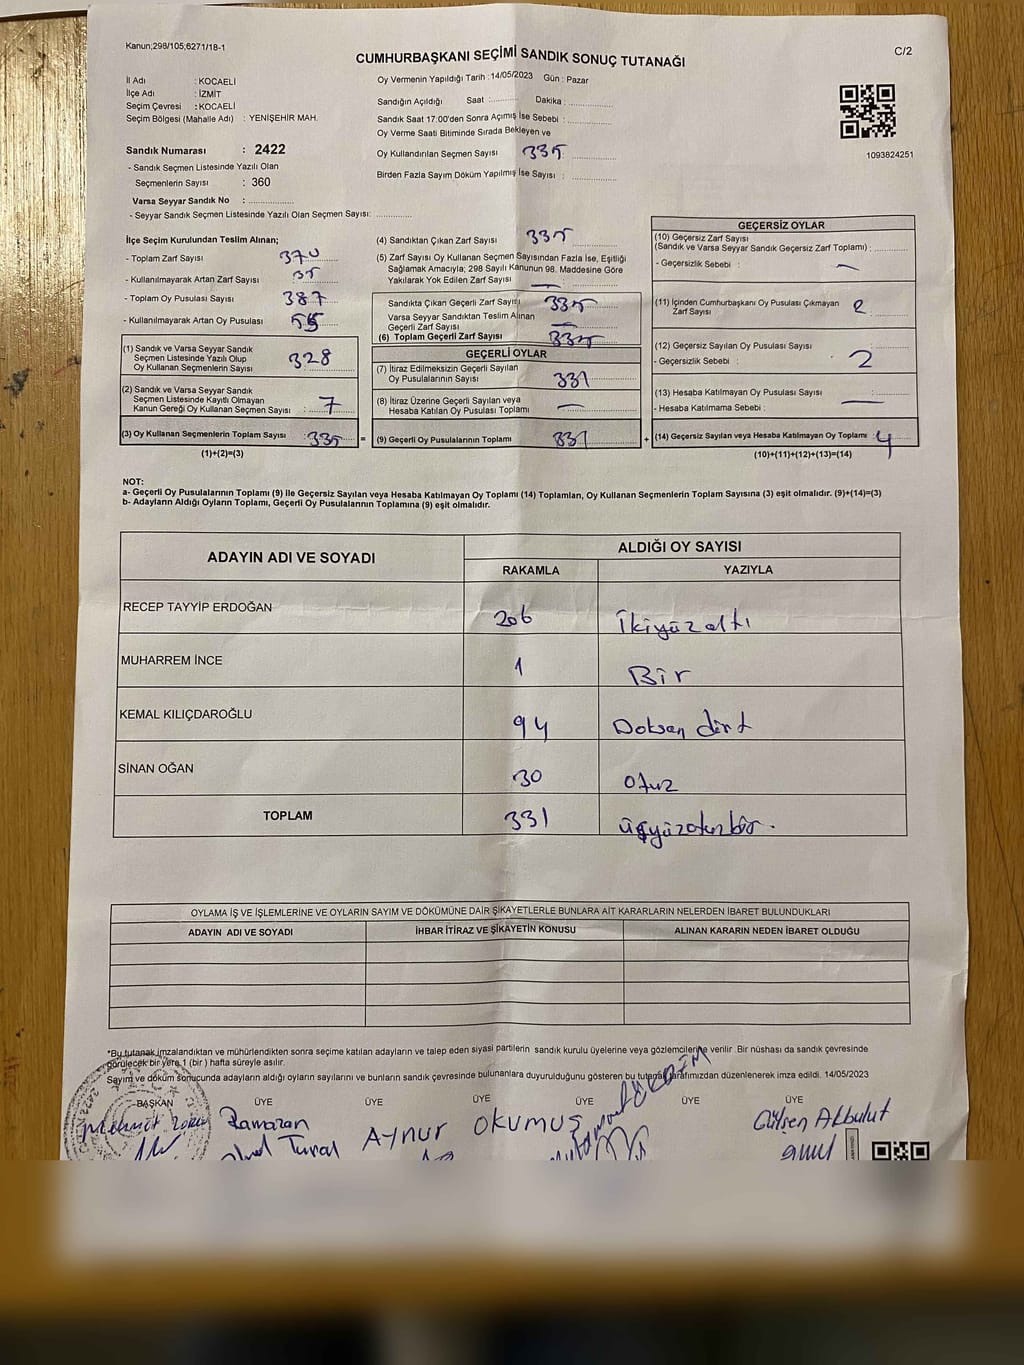 Kanun;298/105,6271/18-1
CUMHURBAŞKANI SEÇİMİ SANDIK SONUÇ TUTANAĞI
C/2
İl Adı : KOCAELİ
İlçe Adı : İZMİT
Seçim Çevresi : KOCAELİ
Seçim Bölgesi (Mahalle Adı) : YENİŞEHİR MAH.
Sandık Numarası : 2422
- Sandık Seçmen Listesinde Yazılı Olan
Seçmenlerin Sayısı : 360
Varsa Seyyar Sandık No :
- Seyyar Sandık Seçmen Listesinde Yazılı Olan Seçmen Sayısı:
Oy Vermenin Yapıldığı Tarih : 14/05/2023 Gün : Pazar
Sandığın Açıldığı Saat : Dakika :
Sandık Saat 17:00'den Sonra Açımış İse Sebebi :
Oy Verme Saati Bitiminde Sırada Bekleyen ve
Oy Kullandırılan Seçmen Sayısı : 335
Birden Fazla Sayım Döküm Yapılmış İse Sayısı :
1093824251
İlçe Seçim Kurulundan Teslim Alınan;
- Toplam Zarf Sayısı : 370
- Kullanılmayarak Artan Zarf Sayısı : 35
- Toplam Oy Pusulası Sayısı : 387
- Kullanılmayarak Artan Oy Pusulası :
(1) Sandık ve Varsa Seyyar Sandık
Seçmen Listesinde Yazılı Olup
Oy Kullanan Seçmenlerin Sayısı : 328
(2) Sandık ve Varsa Seyyar Sandık
Seçmen Listesinde Kayıtlı Olmayan
Kanun Gereği Oy Kullanan Seçmen Sayısı : 7
(3) Oy Kullanan Seçmenlerin Toplam Sayısı : 335
(1)+(2)=(3)
(4) Sandıktan Çıkan Zarf Sayısı : 335
(5) Zarf Sayısı Oy Kullanan Seçmen Sayısından Fazla İse, Eşitliği
Sağlamak Amacıyla; 298 Sayılı Kanunun 98. Maddesine Göre
Yakılarak Yok Edilen Zarf Sayısı : —
Sandıkta Çıkan Geçerli Zarf Sayısı : 335
Varsa Seyyar Sandıktan Teslim Alınan
Geçerli Zarf Sayısı : —
(6) Toplam Geçerli Zarf Sayısı : 335
GEÇERLİ OYLAR
(7) İtiraz Edilmeksizin Geçerli Sayılan
Oy Pusulalarının Sayısı : 331
(8) İtiraz Üzerine Geçerli Sayılan veya
Hesaba Katılan Oy Pusulası Toplamı : —
= (9) Geçerli Oy Pusulalarının Toplamı : 331
GEÇERSİZ OYLAR
(10) Geçersiz Zarf Sayısı
(Sandık ve Varsa Seyyar Sandık Geçersiz Zarf Toplamı) :
- Geçersizlik Sebebi : —
(11) İçinden Cumhurbaşkanı Oy Pusulası Çıkmayan
Zarf Sayısı : 2
(12) Geçersiz Sayılan Oy Pusulası Sayısı :
- Geçersizlik Sebebi : 2
(13) Hesaba Katılmayan Oy Pusulası :
- Hesaba Katılmama Sebebi : —
+ (14) Geçersiz Sayılan veya Hesaba Katılmayan Oy Toplamı : 4
(10)+(11)+(12)+(13)=(14)
NOT:
a- Geçerli Oy Pusulalarının Toplamı (9) ile Geçersiz Sayılan veya Hesaba Katılmayan Oy Toplamı (14) Toplamları, Oy Kullanan Seçmenlerin Toplam Sayısına (3) eşit olmalıdır. (9)+(14)=(3)
b- Adayların Aldığı Oyların Toplamı, Geçerli Oy Pusulalarının Toplamına (9) eşit olmalıdır.
ADAYIN ADI VE SOYADI
ALDIĞI OY SAYISI
RAKAMLA YAZIYLA
RECEP TAYYİP ERDOĞAN 206 İkiyüzaltı
MUHARREM İNCE 1 Bir
KEMAL KILIÇDAROĞLU 94 Doksan dört
SİNAN OĞAN 30 Otuz
TOPLAM 331 üçyüzotuzbir.
OYLAMA İŞ VE İŞLEMLERİNE VE OYLARIN SAYIM VE DÖKÜMÜNE DAİR ŞİKAYETLERLE BUNLARA AİT KARARLARIN NELERDEN İBARET BULUNDUKLARI
ADAYIN ADI VE SOYADI İHBAR İTİRAZ VE ŞİKAYETİN KONUSU ALINAN KARARIN NEDEN İBARET OLDUĞU
*Bu tutanak imzalandıktan ve mühürlendikten sonra seçime katılan adayların ve talep eden siyasi partilerin sandık kurulu üyelerine veya gözlemcilerine verilir. Bir nüshası da sandık çevresinde
görülecek bir yere 1 (bir) hafta süreyle asılır.
Sayım ve döküm sonucunda adayların aldığı oyların sayılarını ve bunların sandık çevresinde bulunanlara duyurulduğunu gösteren bu tutanak tarafımızdan düzenlenerek imza edildi. 14/05/2023
BAŞKAN ÜYE ÜYE ÜYE ÜYE ÜYE ÜYE
Mehmet Ramazan Tural Aynur OKUMUŞ Gülsen Akbulut